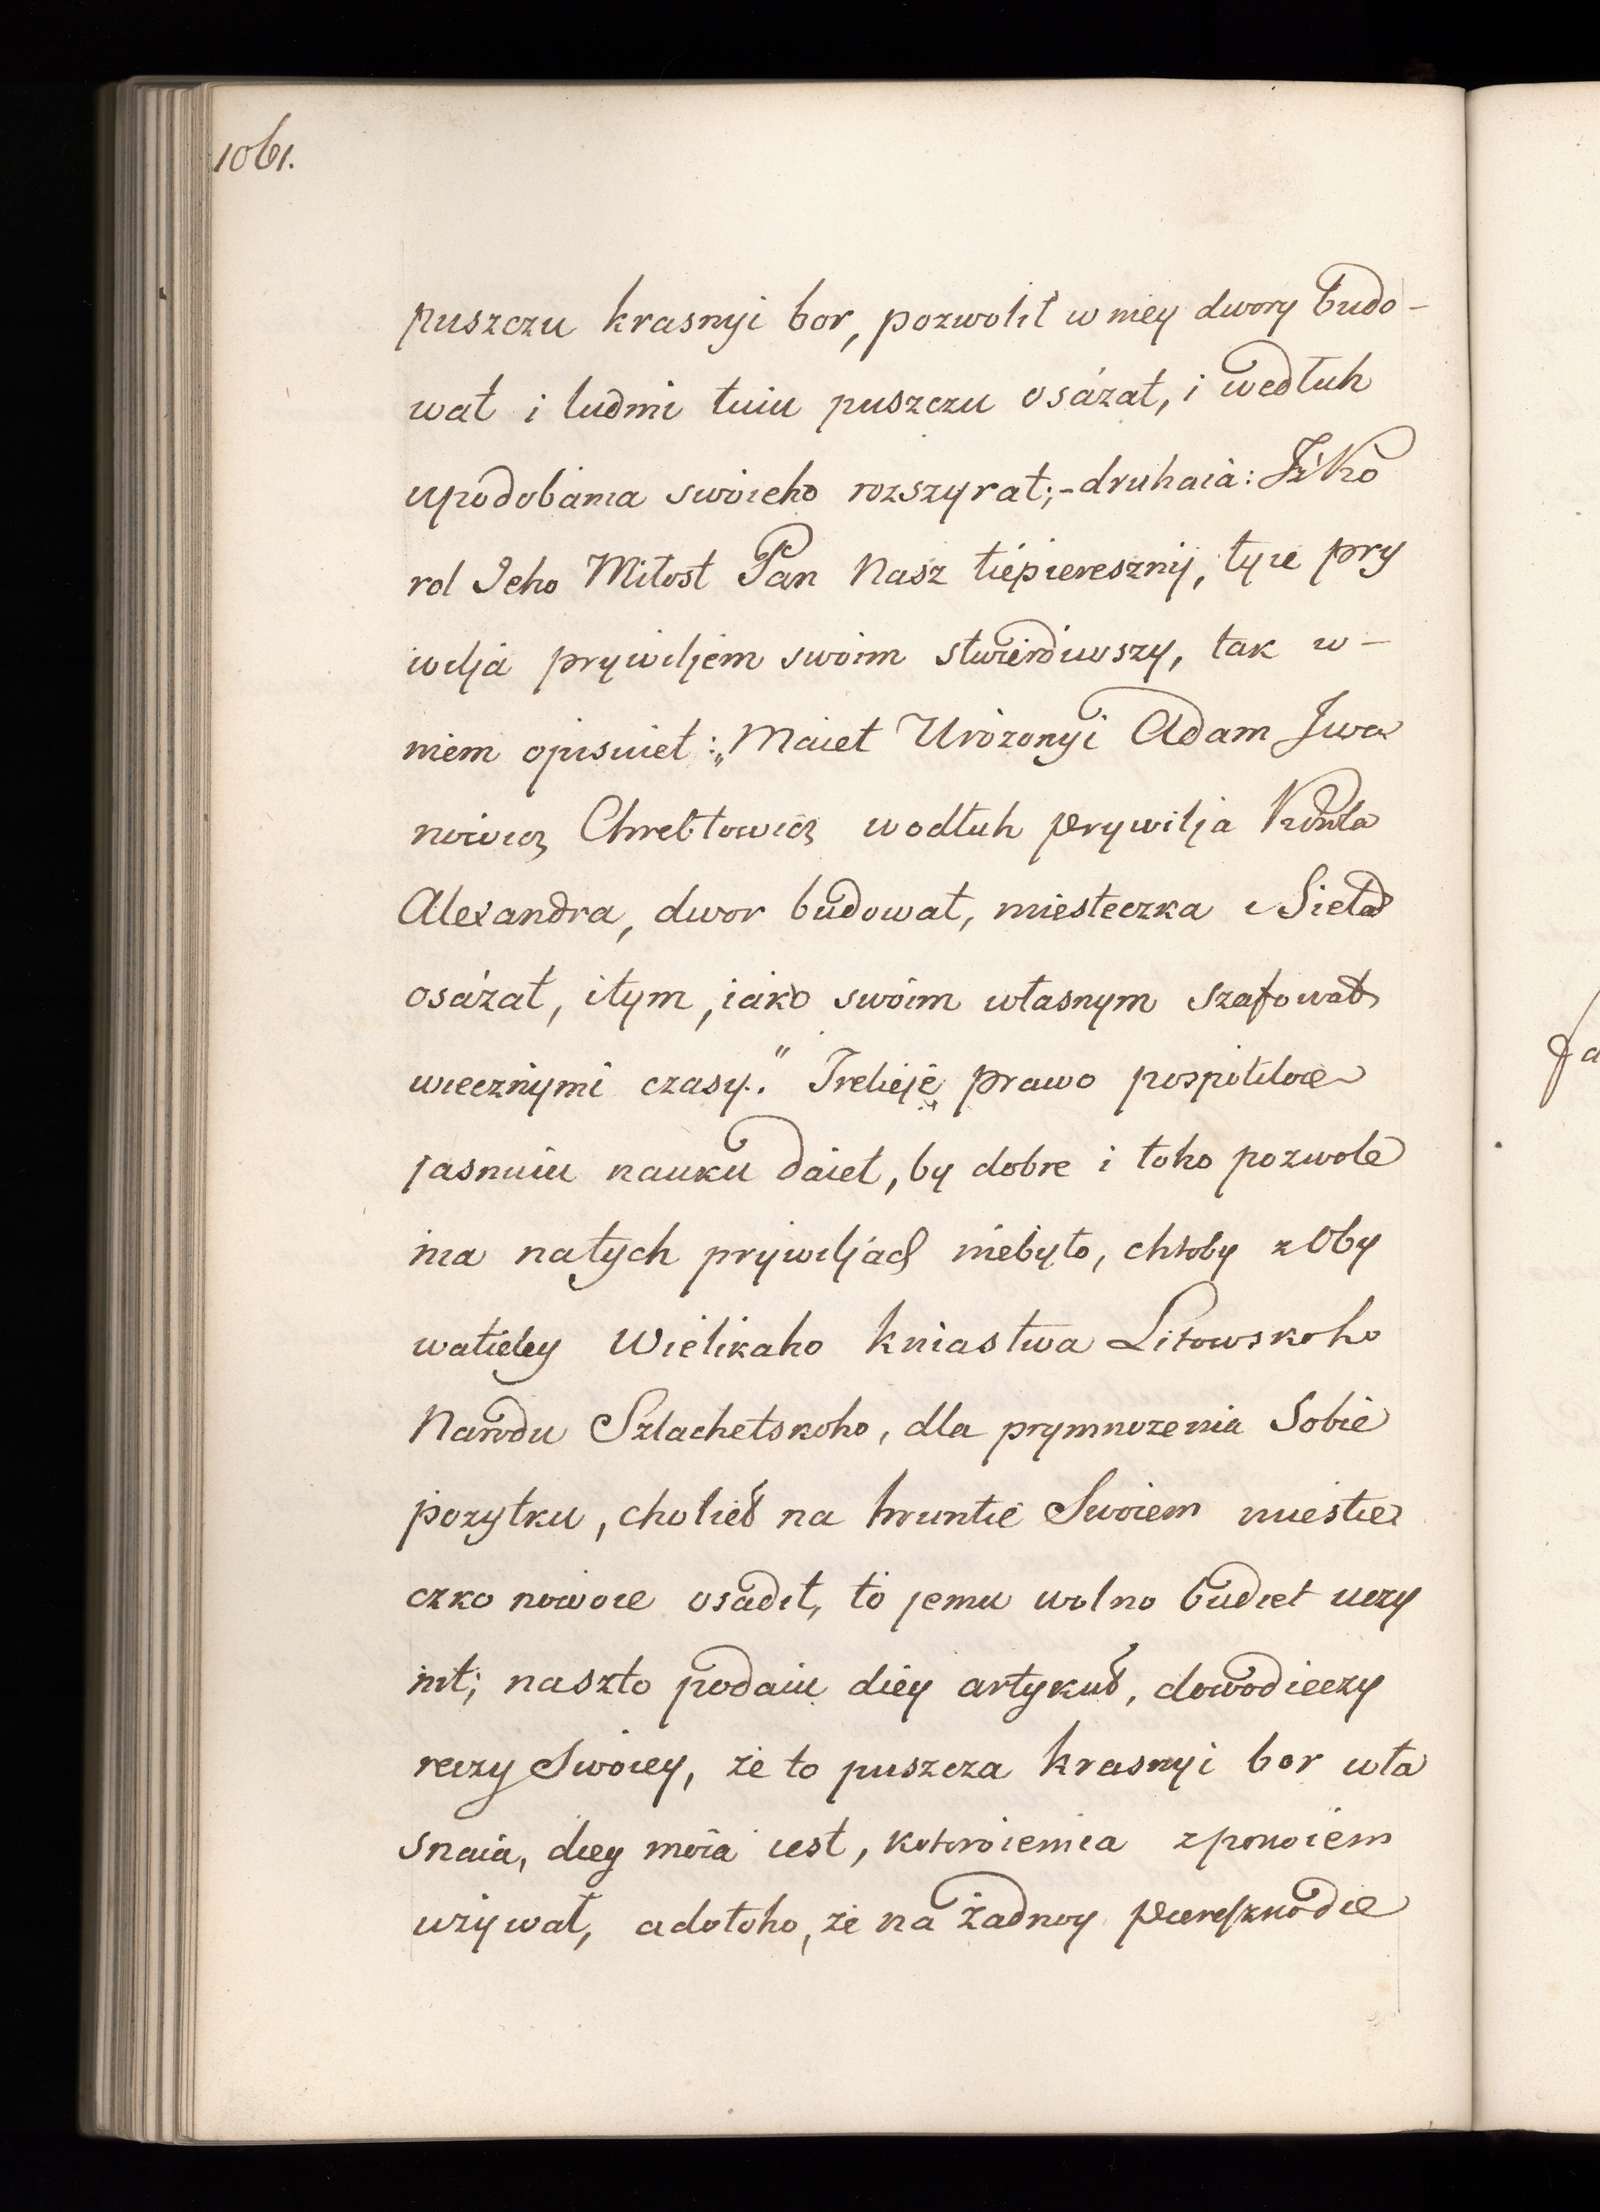 1061.
puszczu krasnyi bor, pozwolił w niey dwory budo-
wat i ludmi tuiu puszczu osáżat, i wedłuh
upodobania swoieho rozszyrat; - druhaia: Jż Ko
rol Jeho Miłost Pan Nasz tiepiereszny, tyie pry
wilja prywiljem swoim stwierdiwszy, tak w-
niem opisuiet: „Maiet Urożonyi Adam Jwa
nowicz Chrebtowicz wodłuh prywilja Korola
Alexandra, dwor budowat, miesteczka i Sieła
osáżat, itym, iako swóim własnym szafowat
wiecznymi czasy." Tretieje, prawo pospolitoie
jasnuiu nauku daiet, by dobre i toho pozwole
nia natych prywiljach niebyło, chtoby z Oby
watieley Wielikaho kniastwa Litowskoho
Narodu Szlachetskoho, dla prymnozenia Sobie
pożytku, chotieł na hruntie Swoiem miestie
czko nowoie osadit, to jemu wolno budiet uczy
nit; naszto podaiu diey artykuł, dowodieczy
reczy Swoiey, że to puszcza krasnyi bor wła
snaia, diey moia iest, kotoroiemia z pokoiem
używat, adotoho, że na żadnoy piereszkodie
fa